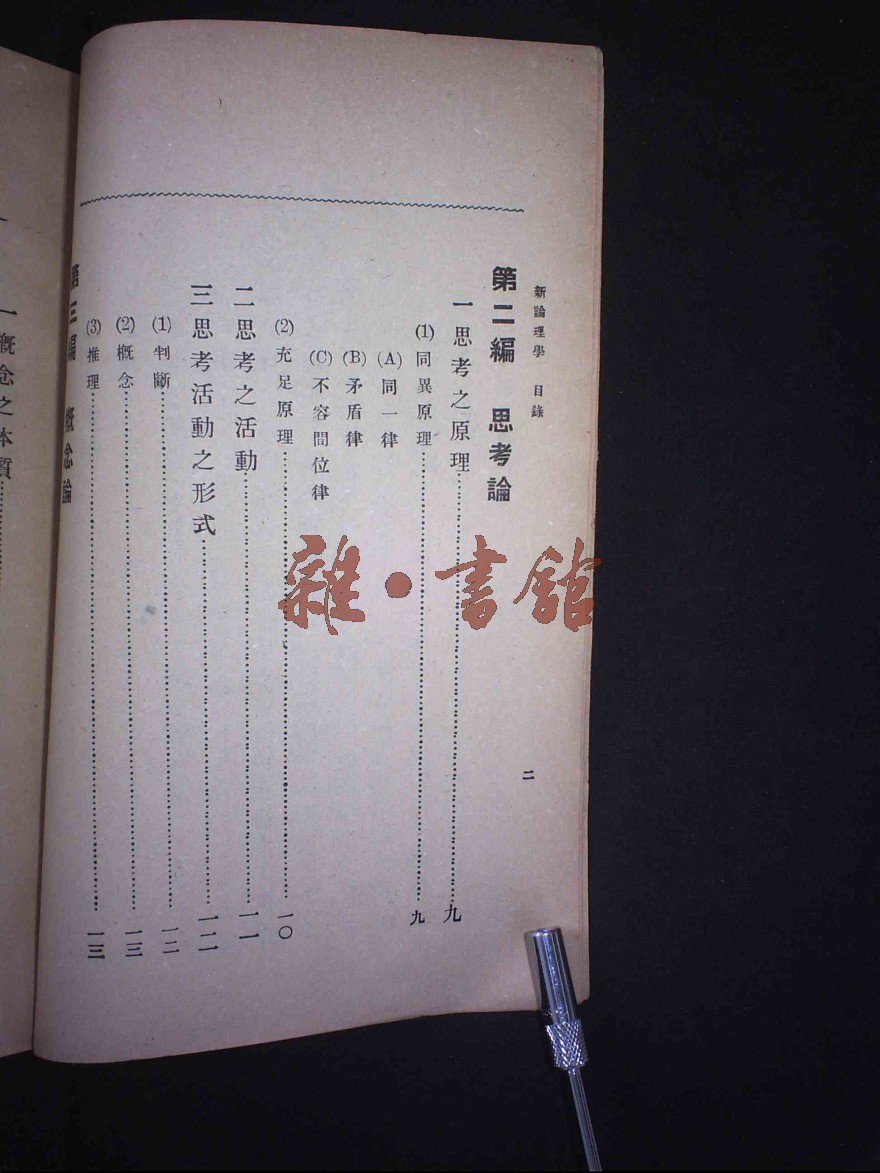 新論理學 目錄
二
第二編 思考論
一 思考之原理……九
(1) 同異原理……九
(A) 同一律
(B) 矛盾律
(C) 不容間位律
(2) 充足原理……一〇
二 思考之活動……一一
三 思考活動之形式……一二
(1) 判斷……一二
(2) 概念……一三
(3) 推理……一三
第三編 概念論
一 概念之本質
雜·書館